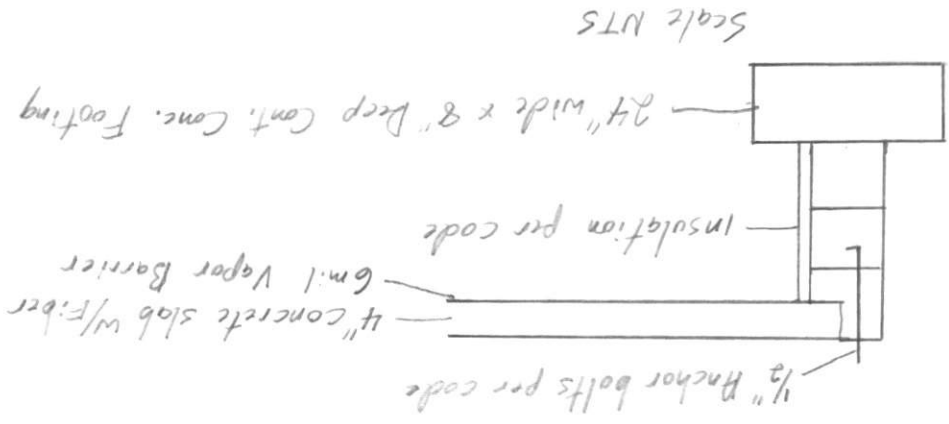 ½" Anchor bolts per code
4" concrete slab w/Fiber
6 mil Vapor Barrier
insulation per code
24" wide x 8" Deep Cont. Conc. Footing
Scale NTS